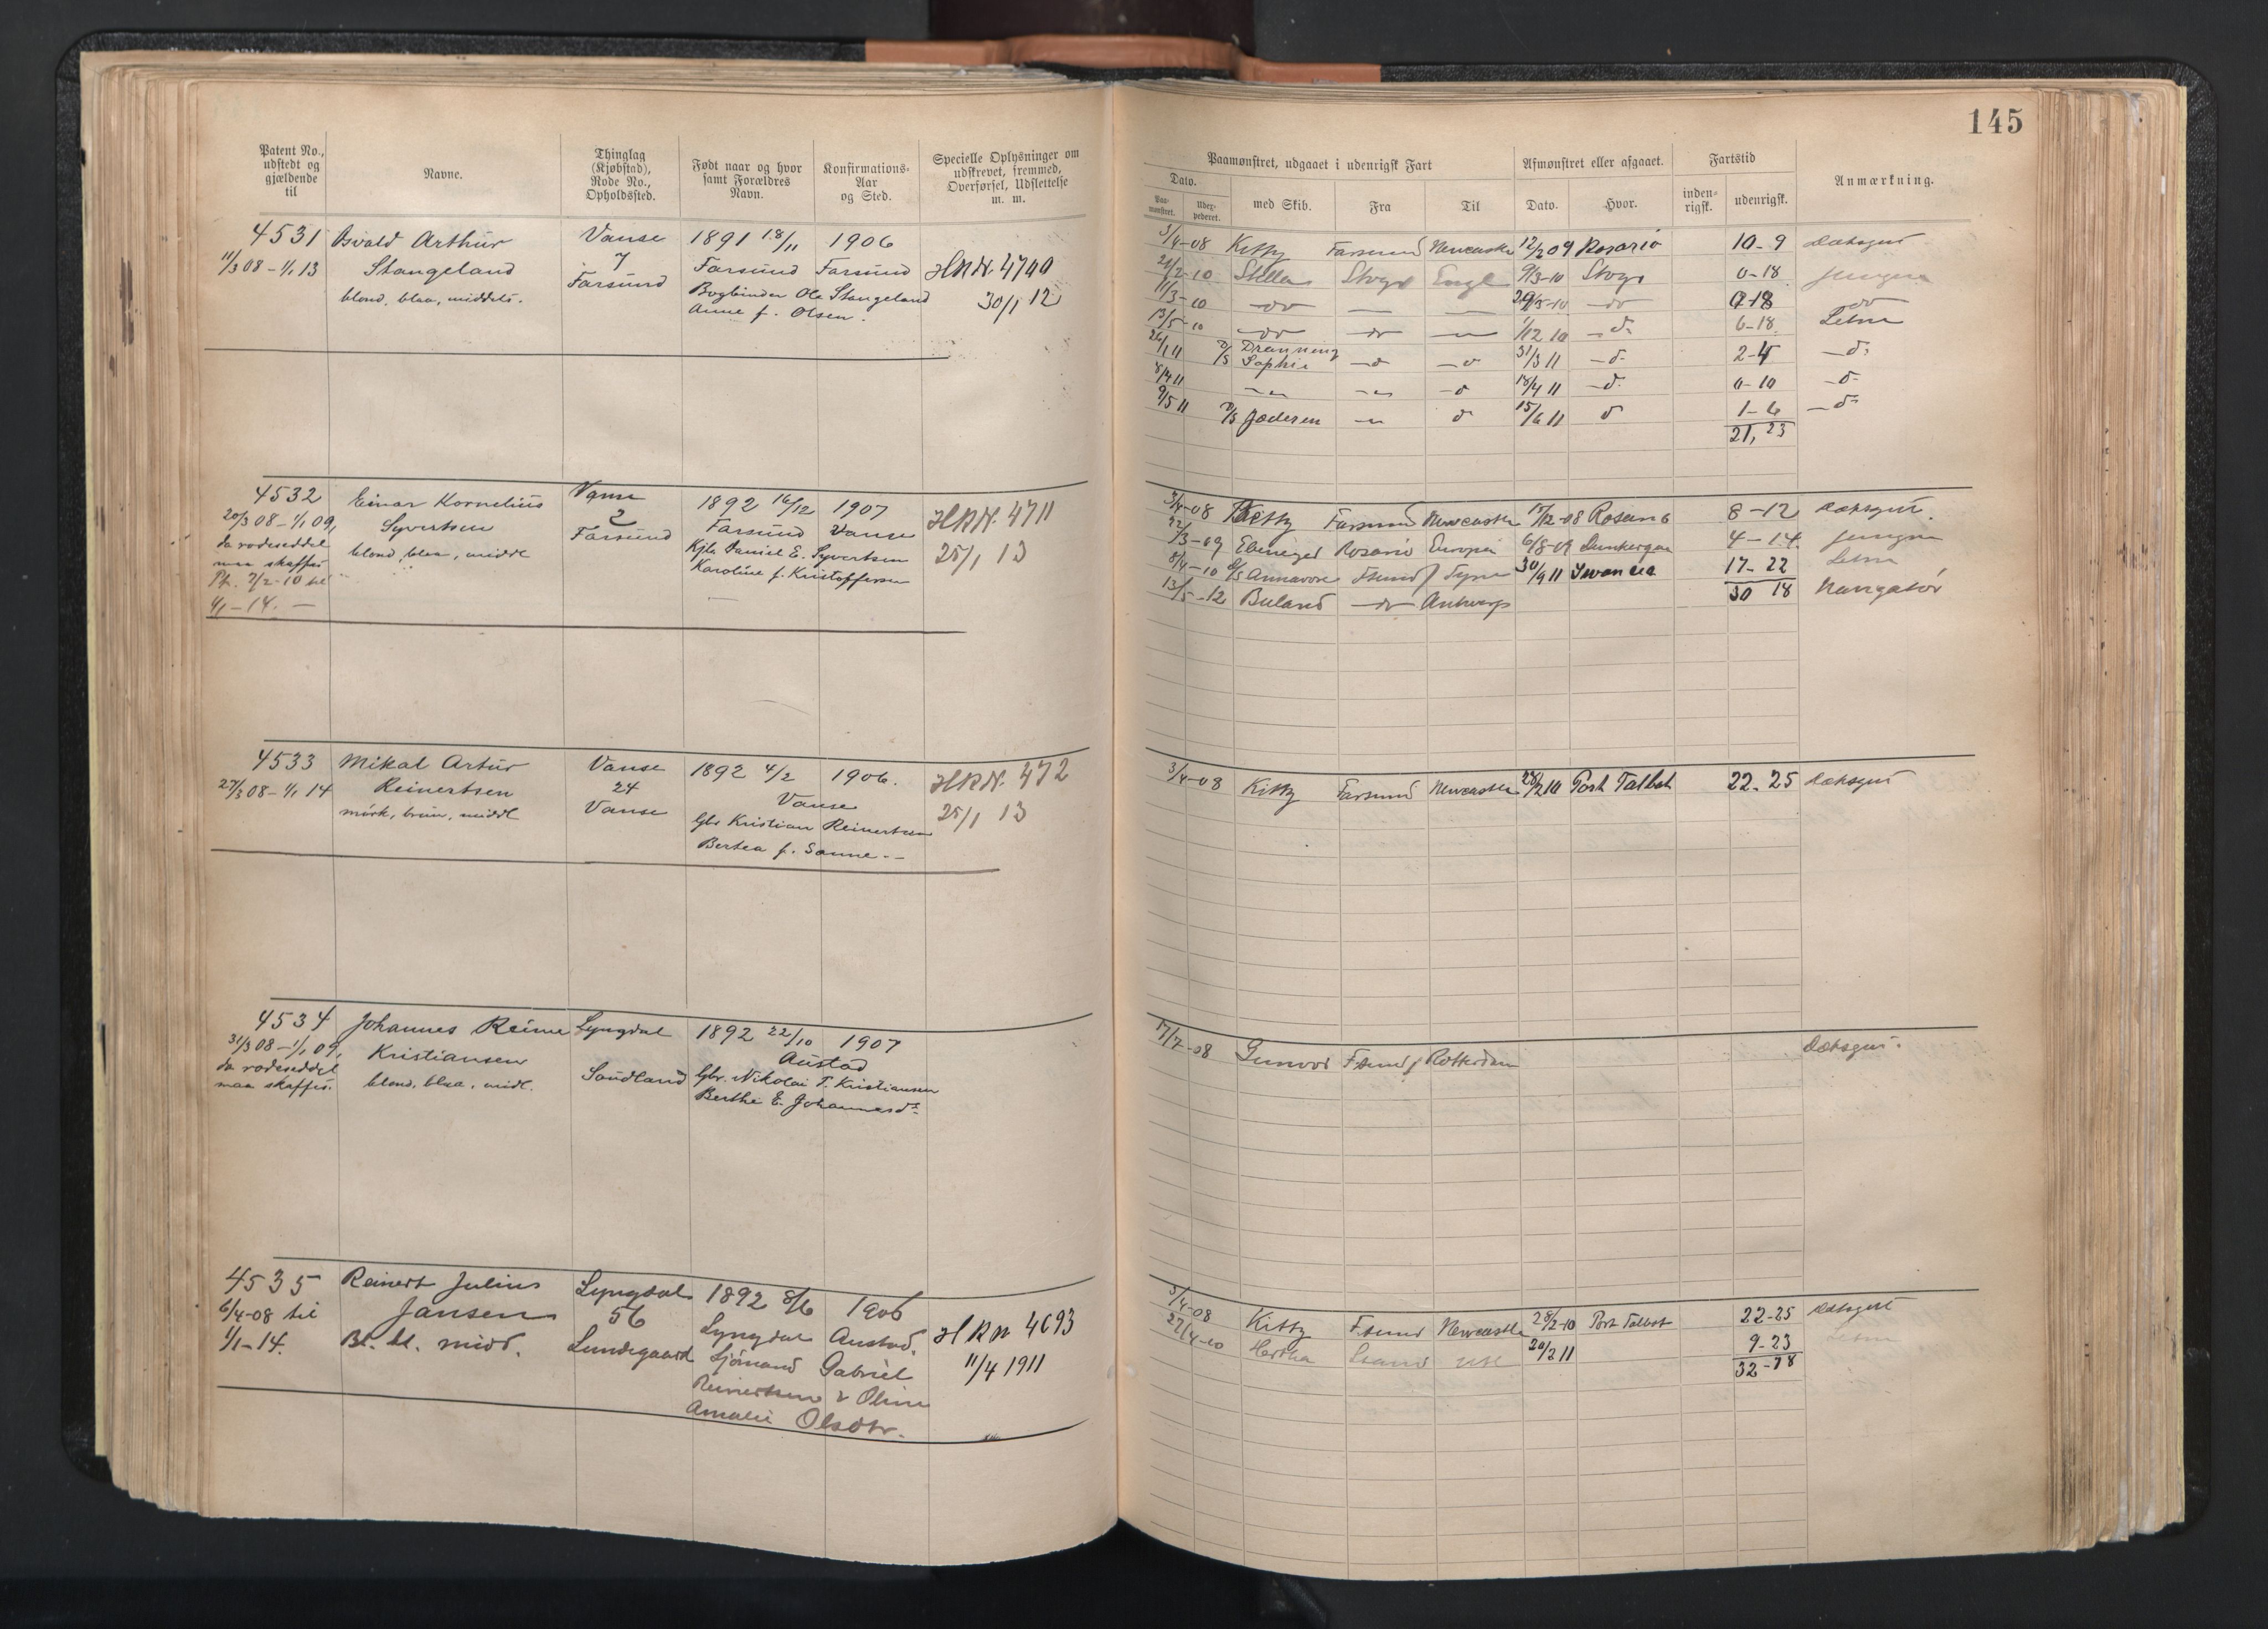 145
Patent No., udstedt og gjældende til
Navne.
Thinglag (Kjøbstad), Rode No., Opholdssted.
Født naar og hvor samt Forældres Navn.
Konfirmations-Aar og Sted.
Specielle Oplysninger om udskrevet, fremmed, Overførsel, Udslettelse m. m.
Paamønstret, udgaaet i udenrigsk Fart
Afmønstret eller afgaaet.
Fartstid
Anmærkning.
Dato.
Paa-mønstret.
med Skib.
Fra
Til
Dato.
Hvor.
inden-rigsk.
udenrigsk.
4531 Osvald Arthur Vanse 1891 18/11 1906
11/3 08 – 1/1 13 Stangeland 7 Farsund Farsund HRN. 4740
blond, blaa, middels. Farsund Bogbinder Ole Stangeland 30/1 12
Anne f. Olsen.
3/4-08 Kitty Farsund Newcastle 12/2 09 Rosario 10-9 Dæksgut
Stella Engl 9/3-10 0-18
11/3-10 do — — 0-18 do
13/5-10 do do — 1/12 10 d. 6-18 Letm
26/1 11 D/S Dronning Sophie d 31/3 11 d. 2-4 d.
8/4 11 18/4 11 d. 0-10 d.
9/5 11 D/S Jæderen d 15/6 11 d 1-6 d.
21, 23
4532 Einar Kornelius Vanse 1892 16/12 1907 HRN. 4711
20/3 08 – 1/1 09, Syvertsen 2 Farsund Vanse 25/1 13
da rodeseddel blond, blaa, middl Farsund Daniel E. Syvertsen
maa skaffes Karoline f. Kristoffersen
1/1 – 14. —
3/4-08 Kitty Farsund Newcastle 17/12-08 Rosario 8-12 Dæksgut.
22/3-09 Ebenezer Rosario Europa 6/8-09 Dunkerque 4-14.
8/4-10 D/S Annavore Fsund Tyne 30/9 11 Swansea 17-22 Letm
13/5-12 Buland do Antwerp 30 18 Navigatør
4533 Mikal Artur Vanse 1892 4/2 1906. HRN. 472
27/3 08 – 1/1 14 Reinertsen 24 Vanse 25/1 13
mørk, brun, middl Vanse Gbr Kristian Reinertsen
Bertea f. Sanne
3/4-08 Kitty Farsund Newcastle 28/2 10 Port Talbot 22-25 Dæksgut
4534 Johannes Reime Lyngdal 1892 22/10 1907
31/3 08 – 1/1 09, Kristiansen Austad
da rodeseddel blond, blaa, midl. Sandland Gbr. Nikolai T. Kristiansen
maa skaffes. Berthe E. Johannesd.
17/7-08 Gunvor Fsund Rotterdam Dæksgut.
4535 Reinert Julius Lyngdal 1892 8/6 1906
6/4-08 til Jansen 56 Lyngdal Austad. HRN 4693
1/1-14. Bl. bl. midd. Lundegaard Sjømand Gabriel 11/4 1911
Reinertsen & Oline
Amalie Olsdtr.
3/4-08 Kitty Fsund Newcastle 28/2-10 Port Talbot 22-25 Dæksgut
27/4-10 Hertha 20/2 11 9-23 Letm
32-18